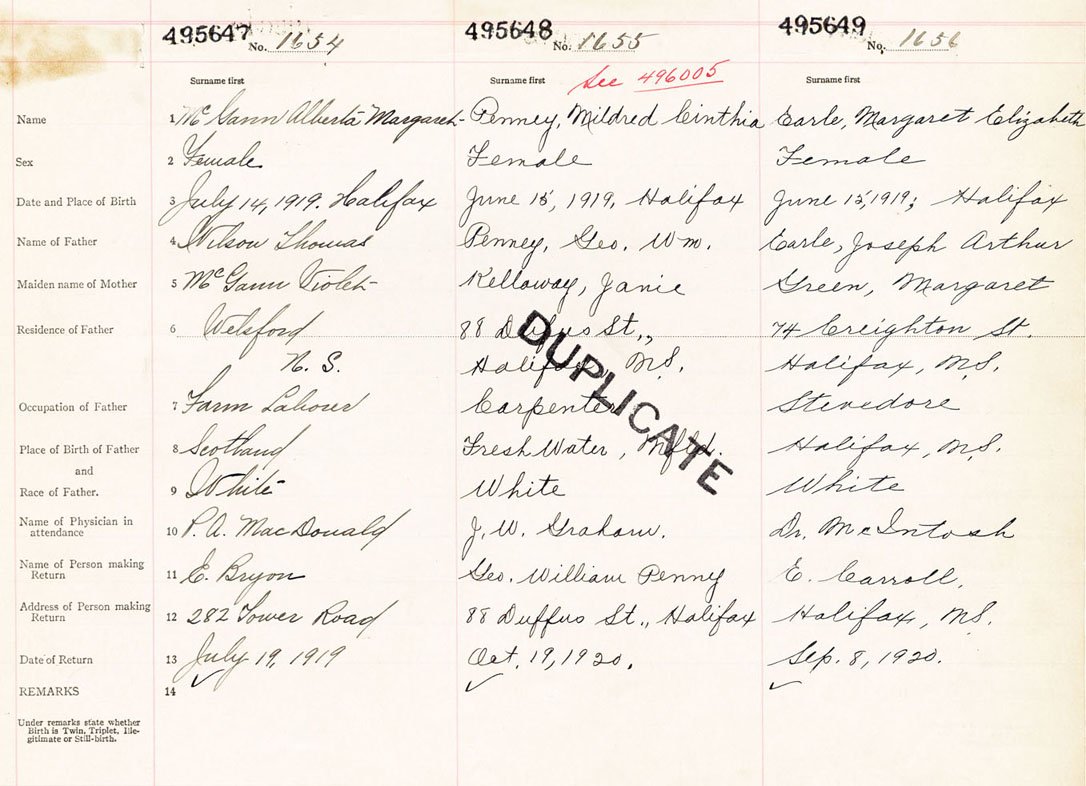 495647 No. 1654
495648 No. 1655
495649 No. 1656
Surname first Surname first See 496005 Surname first
Name 1 McGann Alberta Margaret Penney, Mildred Cinthia Earle, Margaret Elizabeth
Sex 2 Female Female Female
Date and Place of Birth 3 July 14, 1919. Halifax June 15, 1919, Halifax June 15, 1919; Halifax
Name of Father 4 Wilson Thomas Penney, Geo. Wm. Earle, Joseph Arthur
Maiden name of Mother 5 McGann Violet Kelloway, Janie Green, Margaret
Residence of Father 6 Welsford 88 Duffus St., 74 Creighton St.
N. S. Halifax, N.S. Halifax, N.S.
DUPLICATE
Occupation of Father 7 Farm Labourer Carpenter Stevedore
Place of Birth of Father 8 Scotland Fresh Water, Nfld. Halifax, N.S.
and
Race of Father. 9 White White White
Name of Physician in
attendance 10 P. A. MacDonald J. W. Graham. Dr. McIntosh
Name of Person making
Return 11 E. Bryon Geo. William Penny E. Carroll,
Address of Person making
Return 12 282 Tower Road 88 Duffus St., Halifax Halifax, N.S.
Date of Return 13 July 19, 1919 Oct, 19, 1920. Sep. 8, 1920.
REMARKS 14 ✓ ✓ ✓
Under remarks state whether
Birth is Twin, Triplet, Ille-
gitimate or Still-birth.